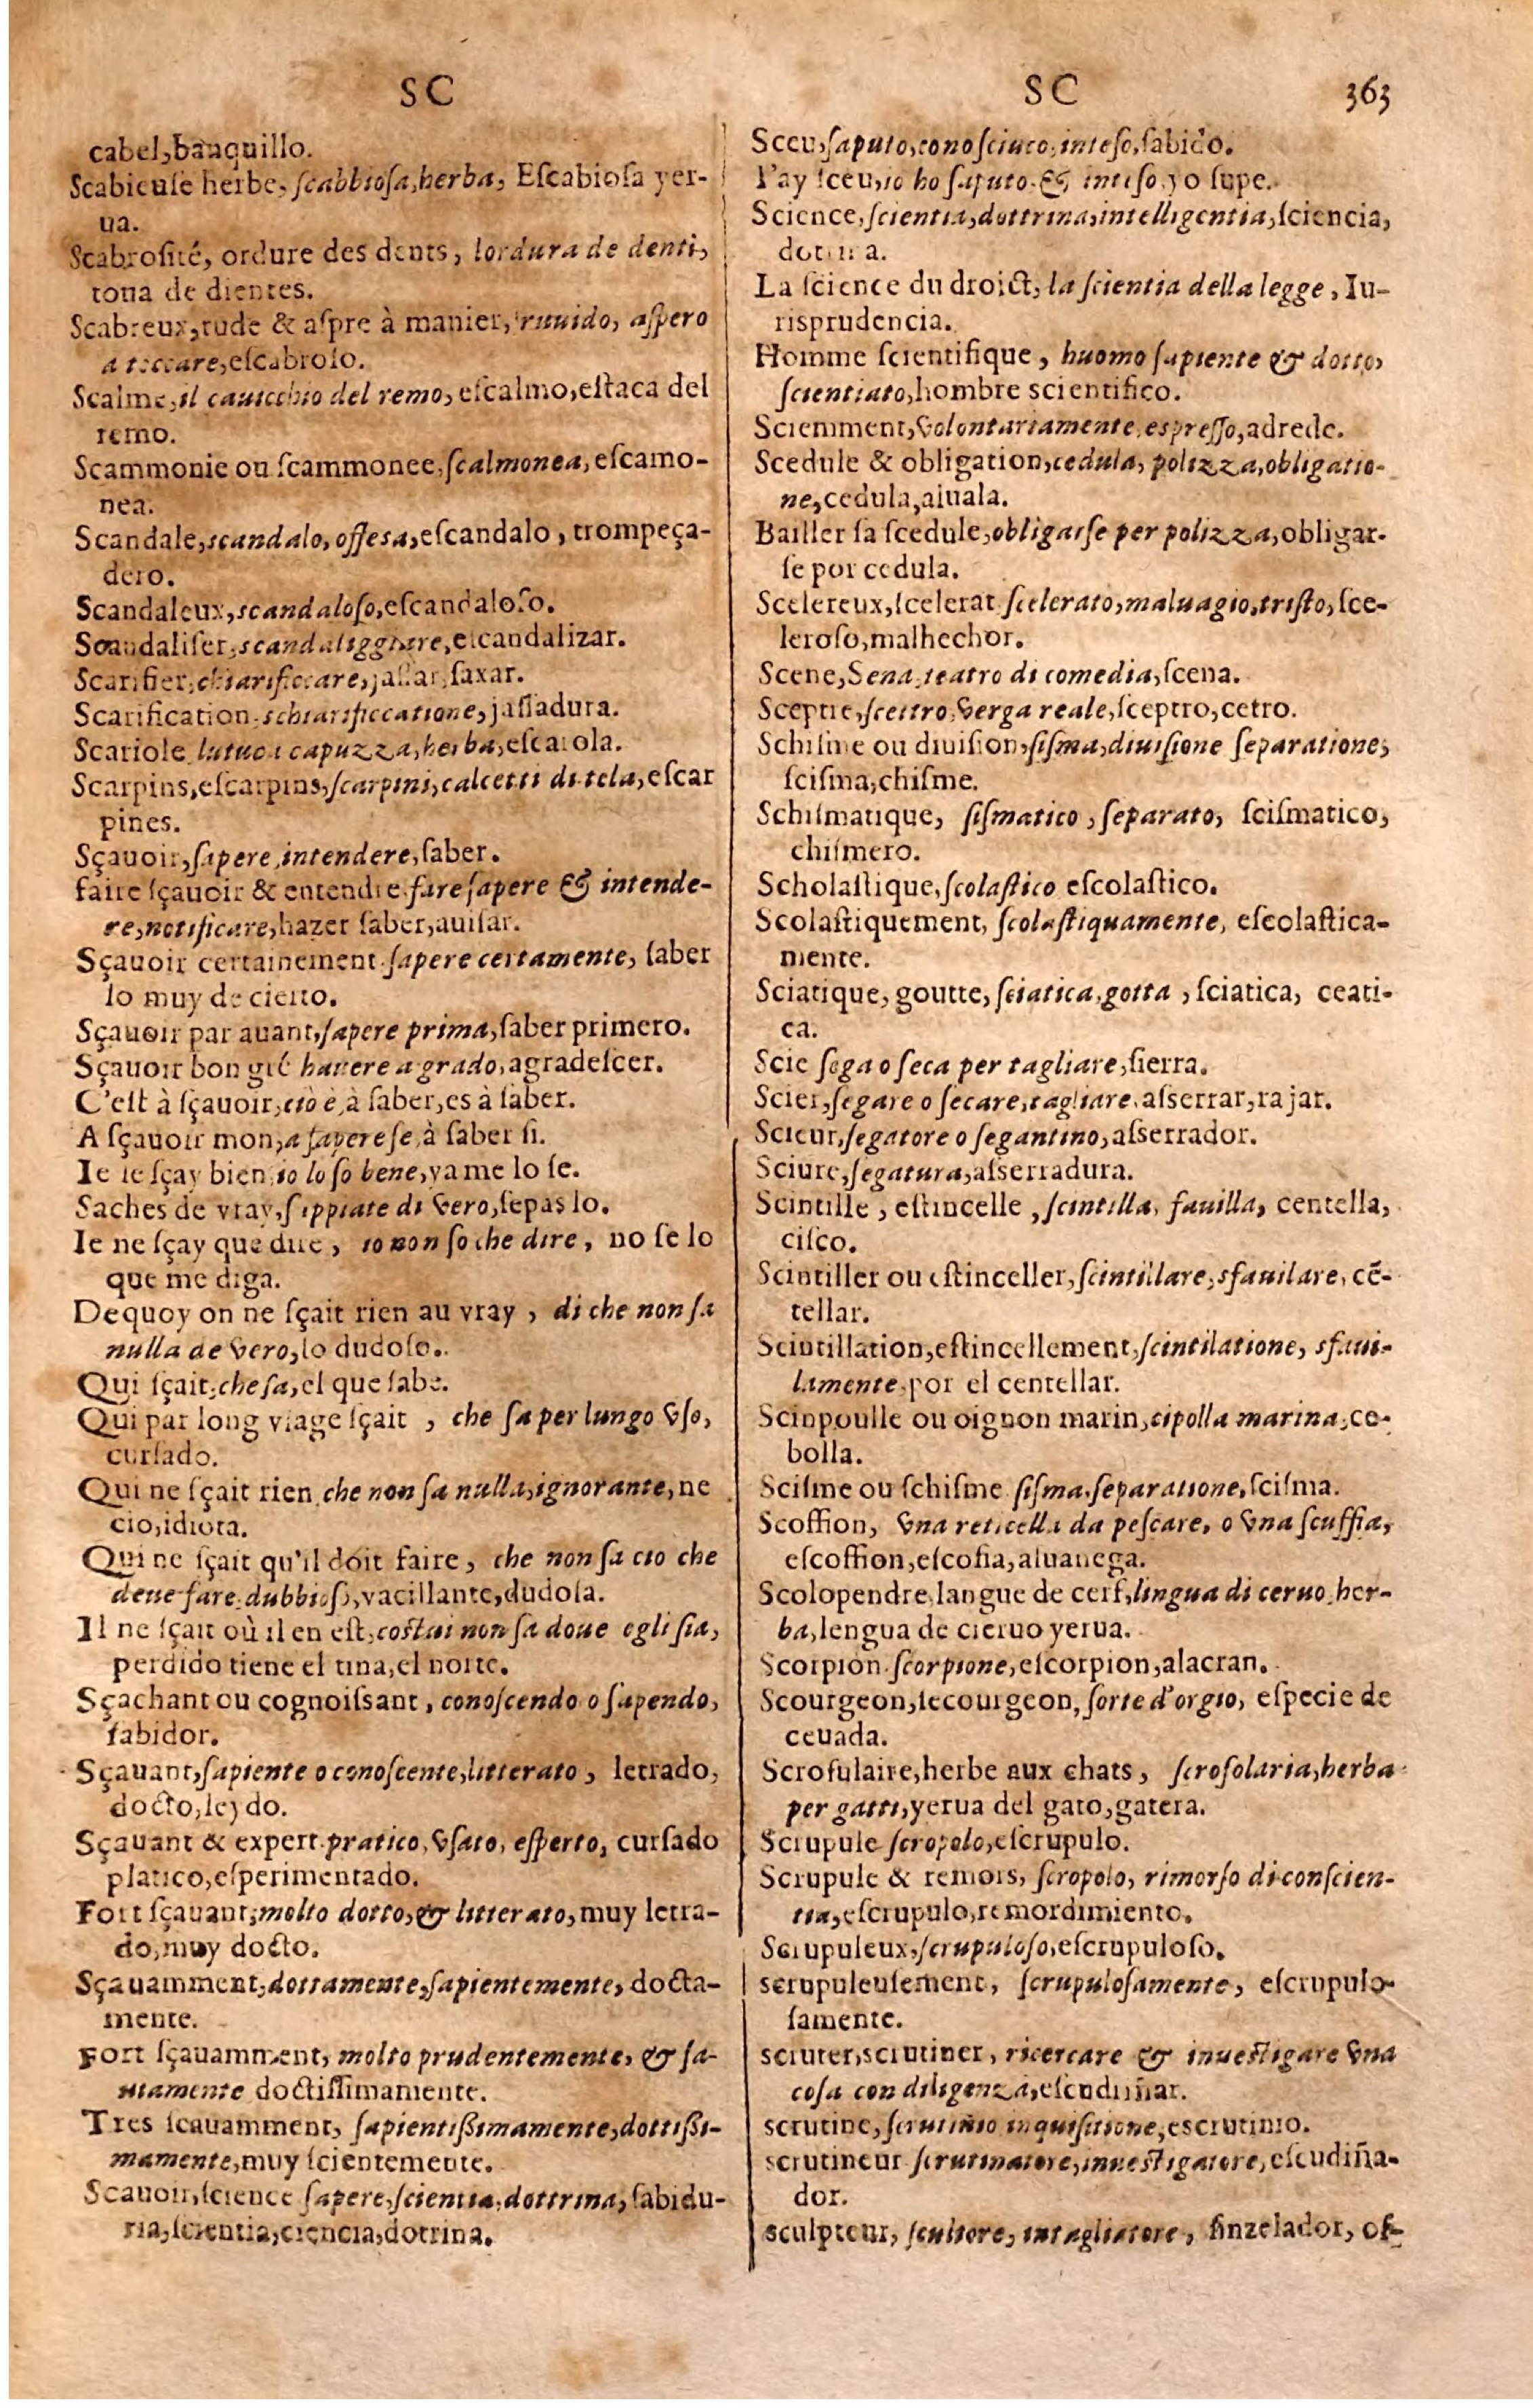 SC
cabel, banquillo.
Scabieuse herbe, ſcabbioſa, herba, Eſcabioſa yer-
ua.
Scabroſité, ordure des dents, lordura de denti,
toua de dientes.
Scabreux, rude & aſpre à manier, ruuido, aſpero
a toccare, eſcabroſo.
Scalme, il cauicchio del remo, eſcalmo, eſtaca del
remo.
Scammonie ou ſcammonee, ſcalmonea, eſcamo-
nea.
Scandale, scandalo, offesa, eſcandalo, trompeça-
dero.
Scandaleux, scandaloſo, eſcandaloſo.
Scandaliſer, scandaliggiare, eſcandalizar.
Scarifier, chiarificcare, jaſſar, ſaxar.
Scarification, schiarificcatione, jaſſadura.
Scariole lutuca capuzza, herba, eſcarola.
Scarpins, eſcarpins, ſcarpini, calcetti di tela, eſcar
pines.
Sçauoir, ſapere, intendere, ſaber.
faire ſçauoir & entendre, fare ſapere & intende-
re, notificare, hazer ſaber, auiſar.
Sçauoir certainement, ſapere certamente, ſaber
lo muy de cierto.
Sçauoir par auant, ſapere prima, ſaber primero.
Sçauoir bon gré hauere a grado, agradeſcer.
C'eſt à ſçauoir, cioè, à ſaber, es à ſaber.
A ſçauoir mon, a ſapere ſe, à ſaber ſi.
Ie le ſçay bien, io lo ſo bene, ya me lo ſe.
Saches de vray, ſappiate di vero, ſepas lo.
Ie ne ſçay que dire, io non ſo che dire, no ſe lo
que me diga.
Dequoy on ne ſçait rien au vray, di che non ſa
nulla de vero, lo dudoſo.
Qui ſçait, che ſa, el que ſabe.
Qui par long vſage ſçait, che ſa per lungo vſo,
curſado.
Qui ne ſçait rien, che non ſa nulla, ignorante, ne
cio, idiota.
Qui ne ſçait qu'il doit faire, che non ſa cio che
deue fare, dubbioſo, vacillante, dudoſa.
Il ne ſçait où il en eſt, costui non ſa doue egli ſia,
perdido tiene el tina, el norte.
Sçachant ou cognoiſsant, conoſcendo o ſapendo,
ſabidor.
Sçauant, ſapiente o conoſcente, litterato, letrado,
docto, leydo.
Sçauant & expert, pratico, vſato, eſperto, curſado
platico, eſperimentado.
Fort ſçauant, molto dotto, & litterato, muy letra-
do, muy docto.
Sçauamment, dottamente, ſapientemente, docta-
mente.
Fort ſçauamment, molto prudentemente, & ſa-
uiamente doctiſſimamente.
Tres ſcauamment, ſapientiſſimamente, dottiſſi-
mamente, muy ſcientemente.
Scauoir, ſcience ſapere, ſcientia, dottrina, ſabidu-
ria, ſcientia, ciencia, dotrina.
SC 363
Sceu, ſaputo, conoſciuto, inteſo, ſabido.
I'ay ſceu, io ho ſaputo & inteſo, yo ſupe.
Science, ſcientia, dottrina, intelligentia, ſciencia,
dotrina.
La ſcience du droict, la ſcientia della legge, Iu-
risprudencia.
Homme ſcientifique, huomo ſapiente & dotto,
ſcientiato, hombre scientifico.
Sciemment, volontariamente, espreſſo, adrede.
Scedule & obligation, cedula, polizza, obligatio-
ne, cedula, aluala.
Bailler ſa ſcedule, obligarſe per polizza, obligar-
ſe por cedula.
Scelereux, ſcelerat ſcelerato, maluagio, triſto, ſce-
leroſo, malhechor.
Scene, Sena, teatro di comedia, ſcena.
Sceptre, ſcettro, verga reale, ſceptro, cetro.
Schiſme ou diuiſion, ſiſma, diuiſione ſeparatione,
ſciſma, chiſme.
Schiſmatique, ſiſmatico, ſeparato, ſciſmatico,
chiſmero.
Scholaſtique, ſcolaſtico eſcolaſtico.
Scolaſtiquement, ſcolaſtiquamente, eſcolaſtica-
mente.
Sciatique, goutte, ſciatica, gotta, ſciatica, ceati-
ca.
Scie ſega o ſeca per tagliare, ſierra.
Scier, ſegare o ſecare, tagliare, aſserrar, rajar.
Scieur, ſegatore o ſegantino, aſserrador.
Sciure, ſegatura, aſserradura.
Scintille, eſtincelle, ſcintilla, fauilla, centella,
ciſco.
Scintiller ou eſtinceller, ſcintillare, sfauilare, cē-
tellar.
Scintillation, eſtincellement, ſcintilatione, sfaui-
lamente, por el centellar.
Scinpoulle ou oignon marin, cipolla marina, ce-
bolla.
Sciſme ou ſchiſme ſiſma, ſeparatione, ſciſma.
Scoffion, vna reticella da peſcare, o vna ſcuffia,
eſcoffion, eſcofia, aluanega.
Scolopendre, langue de cerf, lingua di ceruo, her-
ba, lengua de cieruo yerua.
Scorpion ſcorpione, eſcorpion, alacran.
Scourgeon, ſecourgeon, ſorte d'orgio, eſpecie de
ceuada.
Scrofulaire, herbe aux chats, ſcrofolaria, herba
per gatti, yerua del gato, gatera.
Scrupule ſcropolo, eſcrupulo.
Scrupule & remors, ſcropolo, rimorſo di conſcien-
tia, eſcrupulo, remordimiento.
Scrupuleux, ſcrupuloſo, eſcrupuloſo.
scrupuleuſement, ſcrupuloſamente, eſcrupulo-
ſamente.
scruter, scrutiner, ricercare & inueſtigare vna
coſa con diligenza, eſcudriñar.
scrutine, ſcrutinio inquiſitione, escrutinio.
scrutineur ſcrutinatore, inueſtigatore, eſcudiña-
dor.
sculpteur, ſcultore, intagliatore, ſinzelador, of-